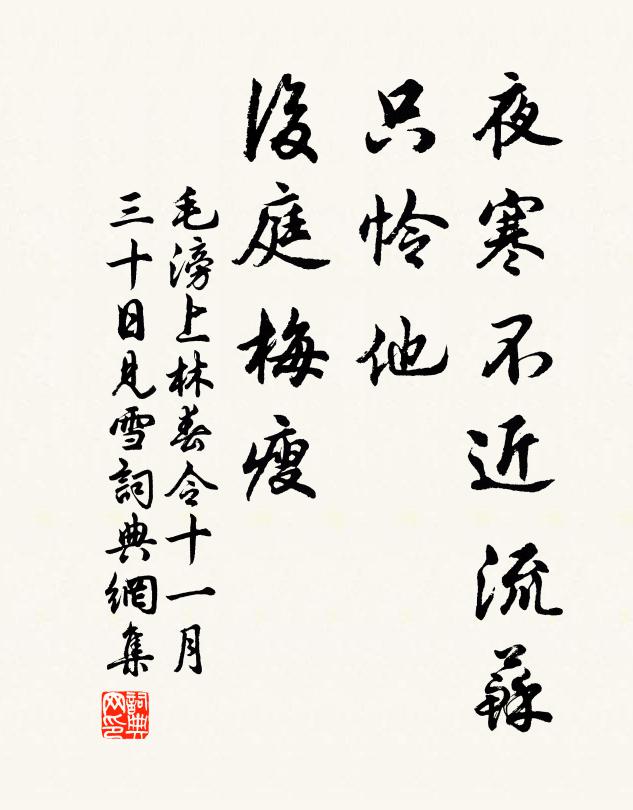 夜寒不近流蘇
只怜他
後庭梅瘦
毛滂上林春令十一月
三十日見雪詞典網集
詞典网印